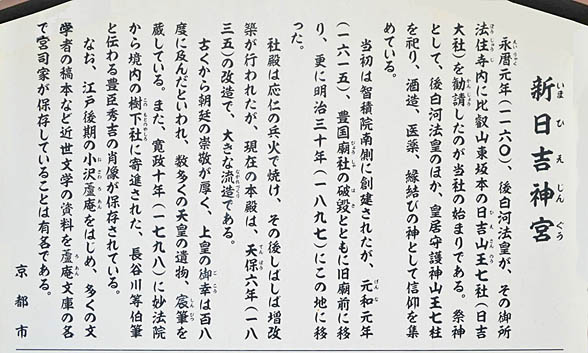 新日吉神宮
いまひえじんぐう
永暦元年（一一六〇）、後白河法皇が、その御所
法住寺内に比叡山東坂本の日吉山王七社（日吉
大社）を勧請したのが当社の始まりである。祭神
として、後白河法皇のほか、皇居守護神山王七柱
を祀り、酒造、医薬、縁結びの神として信仰を集
めている。
当初は智積院南側に創建されたが、元和元年
（一六一五）、豊国廟社の破毀とともに旧廟前に移
り、更に明治三十年（一八九七）にこの地に移
った。
社殿は応仁の兵火で焼け、その後しばしば増改
築が行われたが、現在の本殿は、天保六年（一八
三五）の改造で、大きな流造である。
古くから朝廷の崇敬が厚く、上皇の御幸は百八
度に及んだといわれ、数多くの天皇の遺物、宸筆を
蔵している。また、寛政十年（一七九八）に妙法院
から境内の樹下社に寄進された、長谷川等伯筆
と伝わる豊臣秀吉の肖像が保存されている。
なお、江戸後期の小沢蘆庵をはじめ、多くの文
学者の稿本など近世文学の資料を蘆庵文庫の名
で宮司家が保存していることは有名である。
京都市